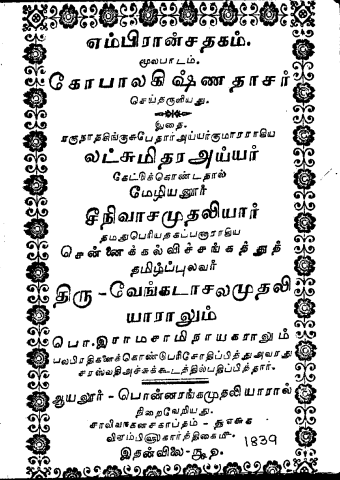 எம்பிரான்சதகம்.
மூலபாடம்.
கோபாலகிஷ்ணதாசர்
செய்தருளியது.
இதை,
ரகுநாதசிங்குசுபேதார்அய்யர்குமாரராகிய
லட்சுமிதரஅய்யர்
கேட்டுக்கொண்டதால்
மேழியனூர்
சீநிவாசமுதலியார்
தமதுபெரியதகப்பனாராகிய
சென்னைக்கல்விச்சங்கத்துத்
தமிழ்ப்புலவர்
திரு-வேங்கடாசலமுதலி
யாராலும்
பொ.இராமசாமிநாயகராலும்
பலபிரதிகளைக்கொண்டுபரிசோதிப்பித்துஅவரது
சரஸ்வதிஅச்சுக்கூடத்திற்பதிப்பித்தார்.
ஆயனூர்-பொன்னரங்கமுதலியாரால்
நிறைவேறியது.
சாலிவாகனசகாப்தம்-
கார்த்திகைமீ 1839
இதன்விலை-